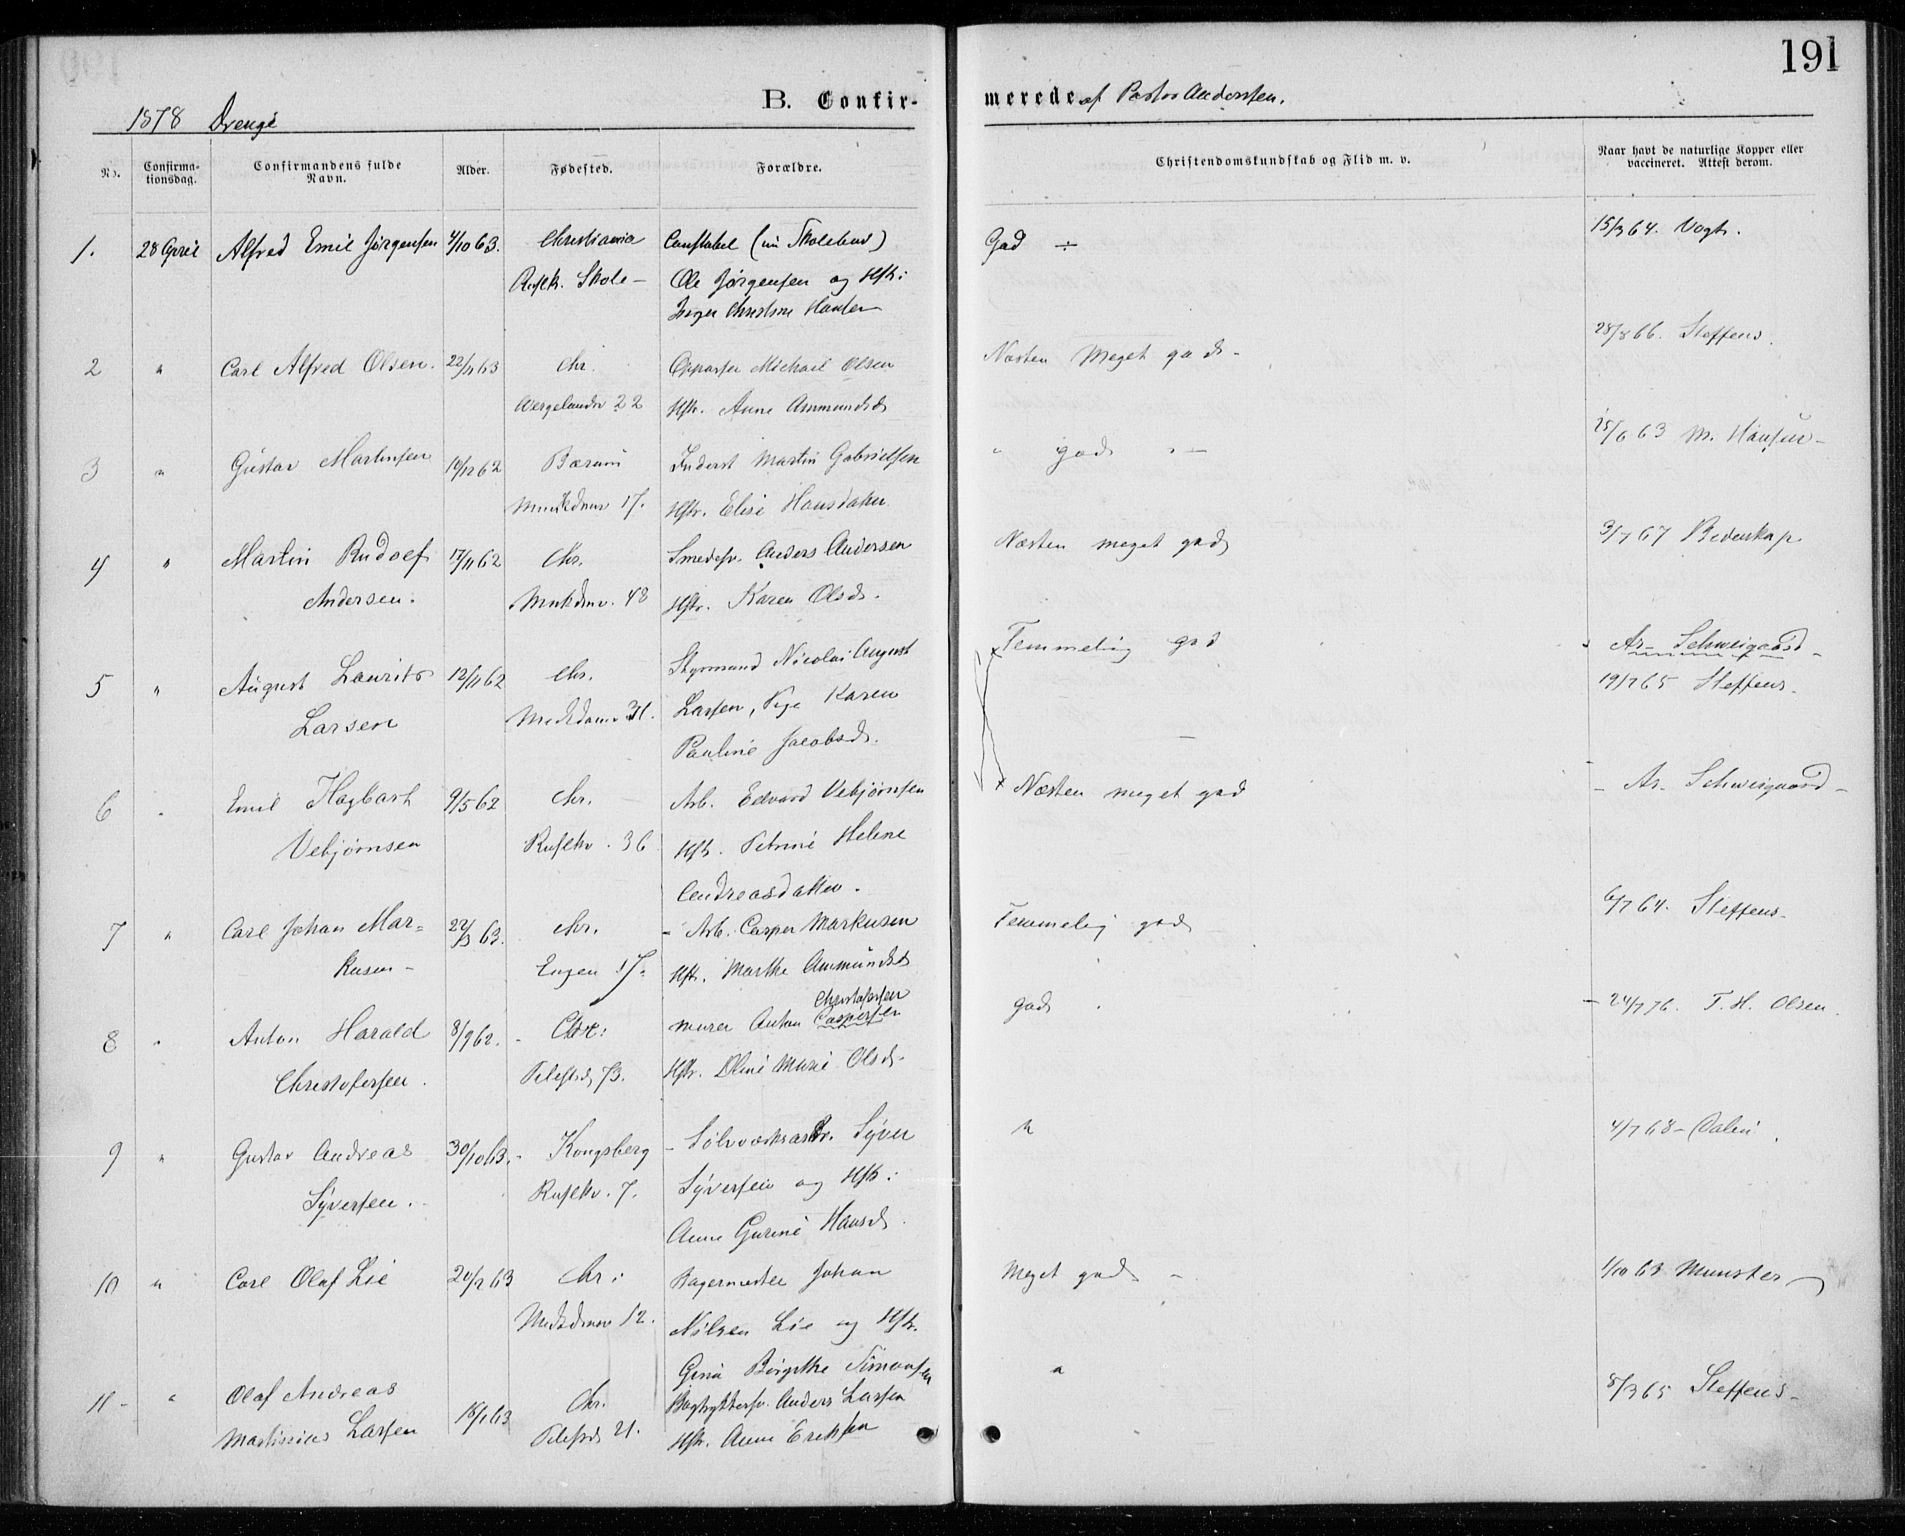 191
B. Confirmerede af Pastor Andersen.
1878 Drenge
No.
Confirmationsdag.
Confirmandens fulde Navn.
Alder.
Fødested.
Forældre.
Christendomskundskab og Flid m. v.
Naar havt de naturlige Kopper eller vaccineret. Attest derom.
1. 28 April Alfred Emil Jørgensen 4/10 63. Christiania Constabel (nu Skolebud) God ÷ 15/3 64. Vogt.
Ruslk. Skole - Ole Jørgensen og Hstr:
Inger Christine Hansen
2 " Carl Alfred Olsen. 22/11 63 Chr. Oppasser Michael Olsen Næsten Meget god - 28/8 66. Steffens.
Wergelandsv 22 Hstr. Anne Ammundsd
3 " Gustav Martinsen 10/12 62 Bærum Inderst Martin Gabrielsen " god " - 15/6 63 M. Hansen -
17. Hstr. Elise Hansdatter
4 " Martin Rudolf 17/11 62 Chr. Smedsv. Anders Andersen Næsten meget god 3/7 67 Bidenkap
Andersen. 48 Hstr. Karen Olsd.
5 " August Laurits 12/11 62 Chr. Styrmand Nicolai August Temmelig god Ar- Schweigaard -
Larsen 31. Larsen, Pige Karen 19/7 65 Steffens.
Pauline Jacobsd.
6 " Emil Hagbart 9/5 62 Chr. Arb. Edvard Vebjørnsen Næsten meget god - Ar- Schweigaard -
Vebjørnsen Ruslkv. 36 Hstr. Petrine Helene
Andreasdatter.
7 " Carl Johan Mar= 22/3 63. Chr. - Arb. Casper Markusen Temmelig god 6/7 64. Steffens-
kusen - Eugen 17. Hstr. Marthe Ammundsd
8 " Anton Harald 8/9 62. - Chr: Murer Anton Caspersen Christofersen god . - 24/7 76. T. H. Olsen.
Christofersen. Pilestd 73. Hstr. Oline Marie Olsd-
9 " Gustav Andreas 30/10 63. - Kongsberg - Sølvværksarb. Syver " 4/7 68 - Dalin.
Syversen. Ruslkv. 7. Syversen og Hstr:
Anne Gurine Hansd
10 " Carl Olaf Lie 20/2 63 Chr: Bagermester Johan Meget god - 1/10 63 Munster
12. Nilsen Lie og Hstr.
Gina Birgithe Simonsen
11 - " Olaf Andreas 18/1 63 Chr. Anders Larsen " 8/3 65 Steffens-
Martinius Larsen Pilestd 21. Hstr. Anne Eriksen